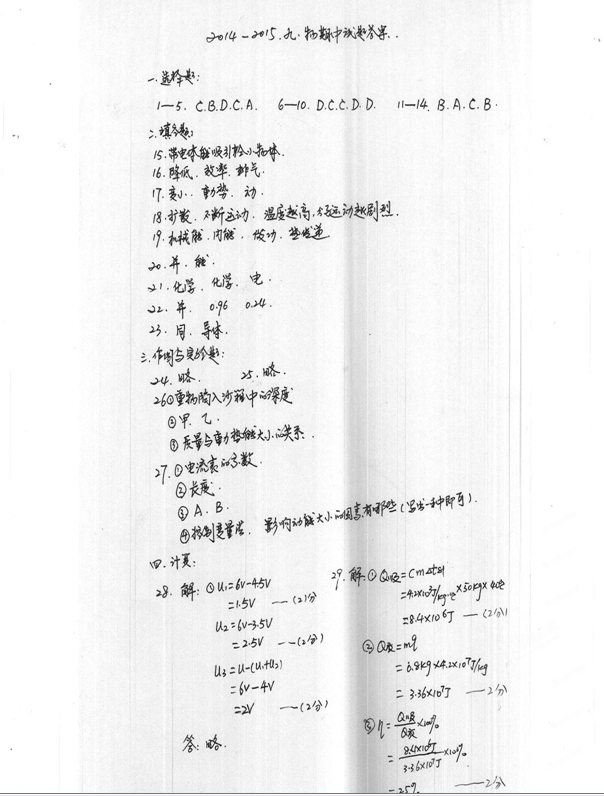 2014-2015.九.物期中试题答案..
一.选择题:
1—5. C.B.D.C.A. 6—10. D.C.C.D.D. 11—14. B.A.C.B.
二.填空题:
15.带电体能吸引轻小物体.
16.降低. 效率. 排气.
17.变小. 重势. 动.
18.扩散. 不断运动. 温度越高,分子运动越剧烈.
19.机械能.内能. 做功. 热传递
20.并. 能.
21.化学. 化学. 电.
22.并. 0.96 0.24.
23.同. 导体.
三.作图与实验题:
24.略. 25.略.
26①重物陷入沙箱中的深度
②甲.乙.
③质量与重力势能大小的关系.
27.①电流表的示数.
②长度.
③A.B.
④控制变量法. 影响动能大小的因素有哪些(写出一种即可).
四.计算:
28.解:①U1=6V-4.5V
=1.5V —(2分)
U2=6V-3.5V
=2.5V —(2分)
U3=U-(U1+U2)
=6V-4V
=2V —(2分)
答:略.
29.解:①Q吸=Cm△t
=4.2×10³J/kg·℃×50kg×40℃
=8.4×10⁶J —(2分)
②Q放=mq
=0.8kg×4.2×10⁷J/kg
=3.36×10⁷J —2分
③η=Q吸/Q放×100%
=8.4×10⁶J/3.36×10⁷J×100%
=25% —2分